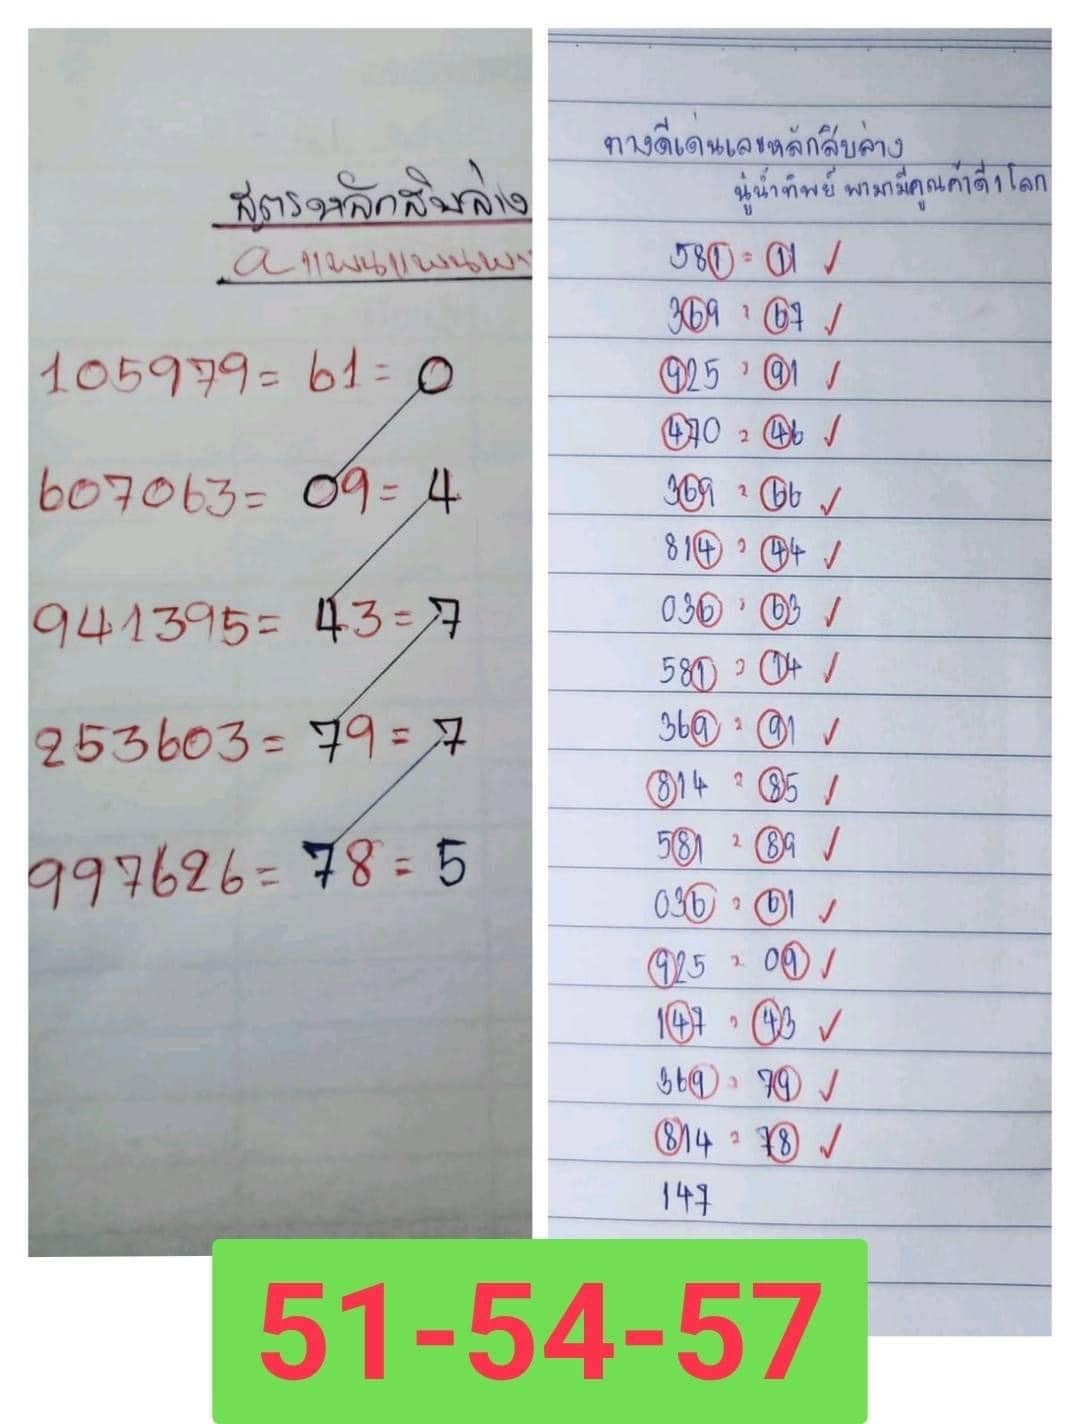 สูตรหลักสิบล่าง
105979 = 61 = 0
607063 = 09 = 4
941395 = 43 = 7
253603 = 79 = 7
997626 = 78 = 5
ทางดีเด่นเลขหลักสิบล่าง
ปู่น้ำทิพย์ พามามีคูณค่าดี1โลก
581 = 11 ✓
369 = 67 ✓
925 = 91 ✓
470 = 46 ✓
369 = 66 ✓
814 = 44 ✓
036 = 63 ✓
581 = 14 ✓
369 = 91 ✓
814 = 85 ✓
581 = 89 ✓
036 = 61 ✓
925 = 09 ✓
147 = 43 ✓
369 = 79 ✓
814 = 78 ✓
147
51-54-57